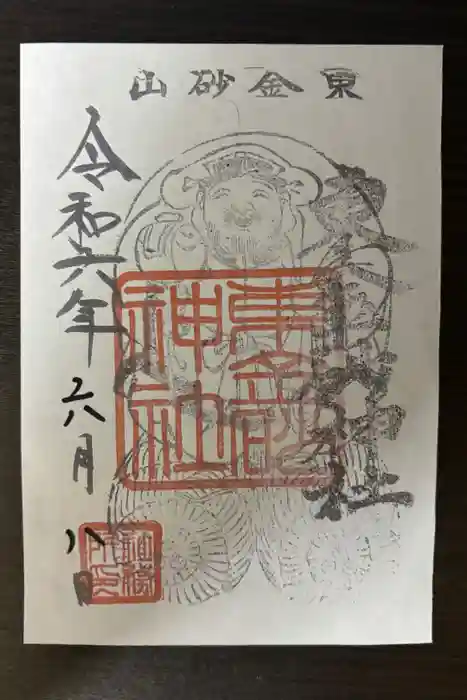 東金砂山
東金砂神社
東金砂
神社
令和六年
六月八日
社務
所印